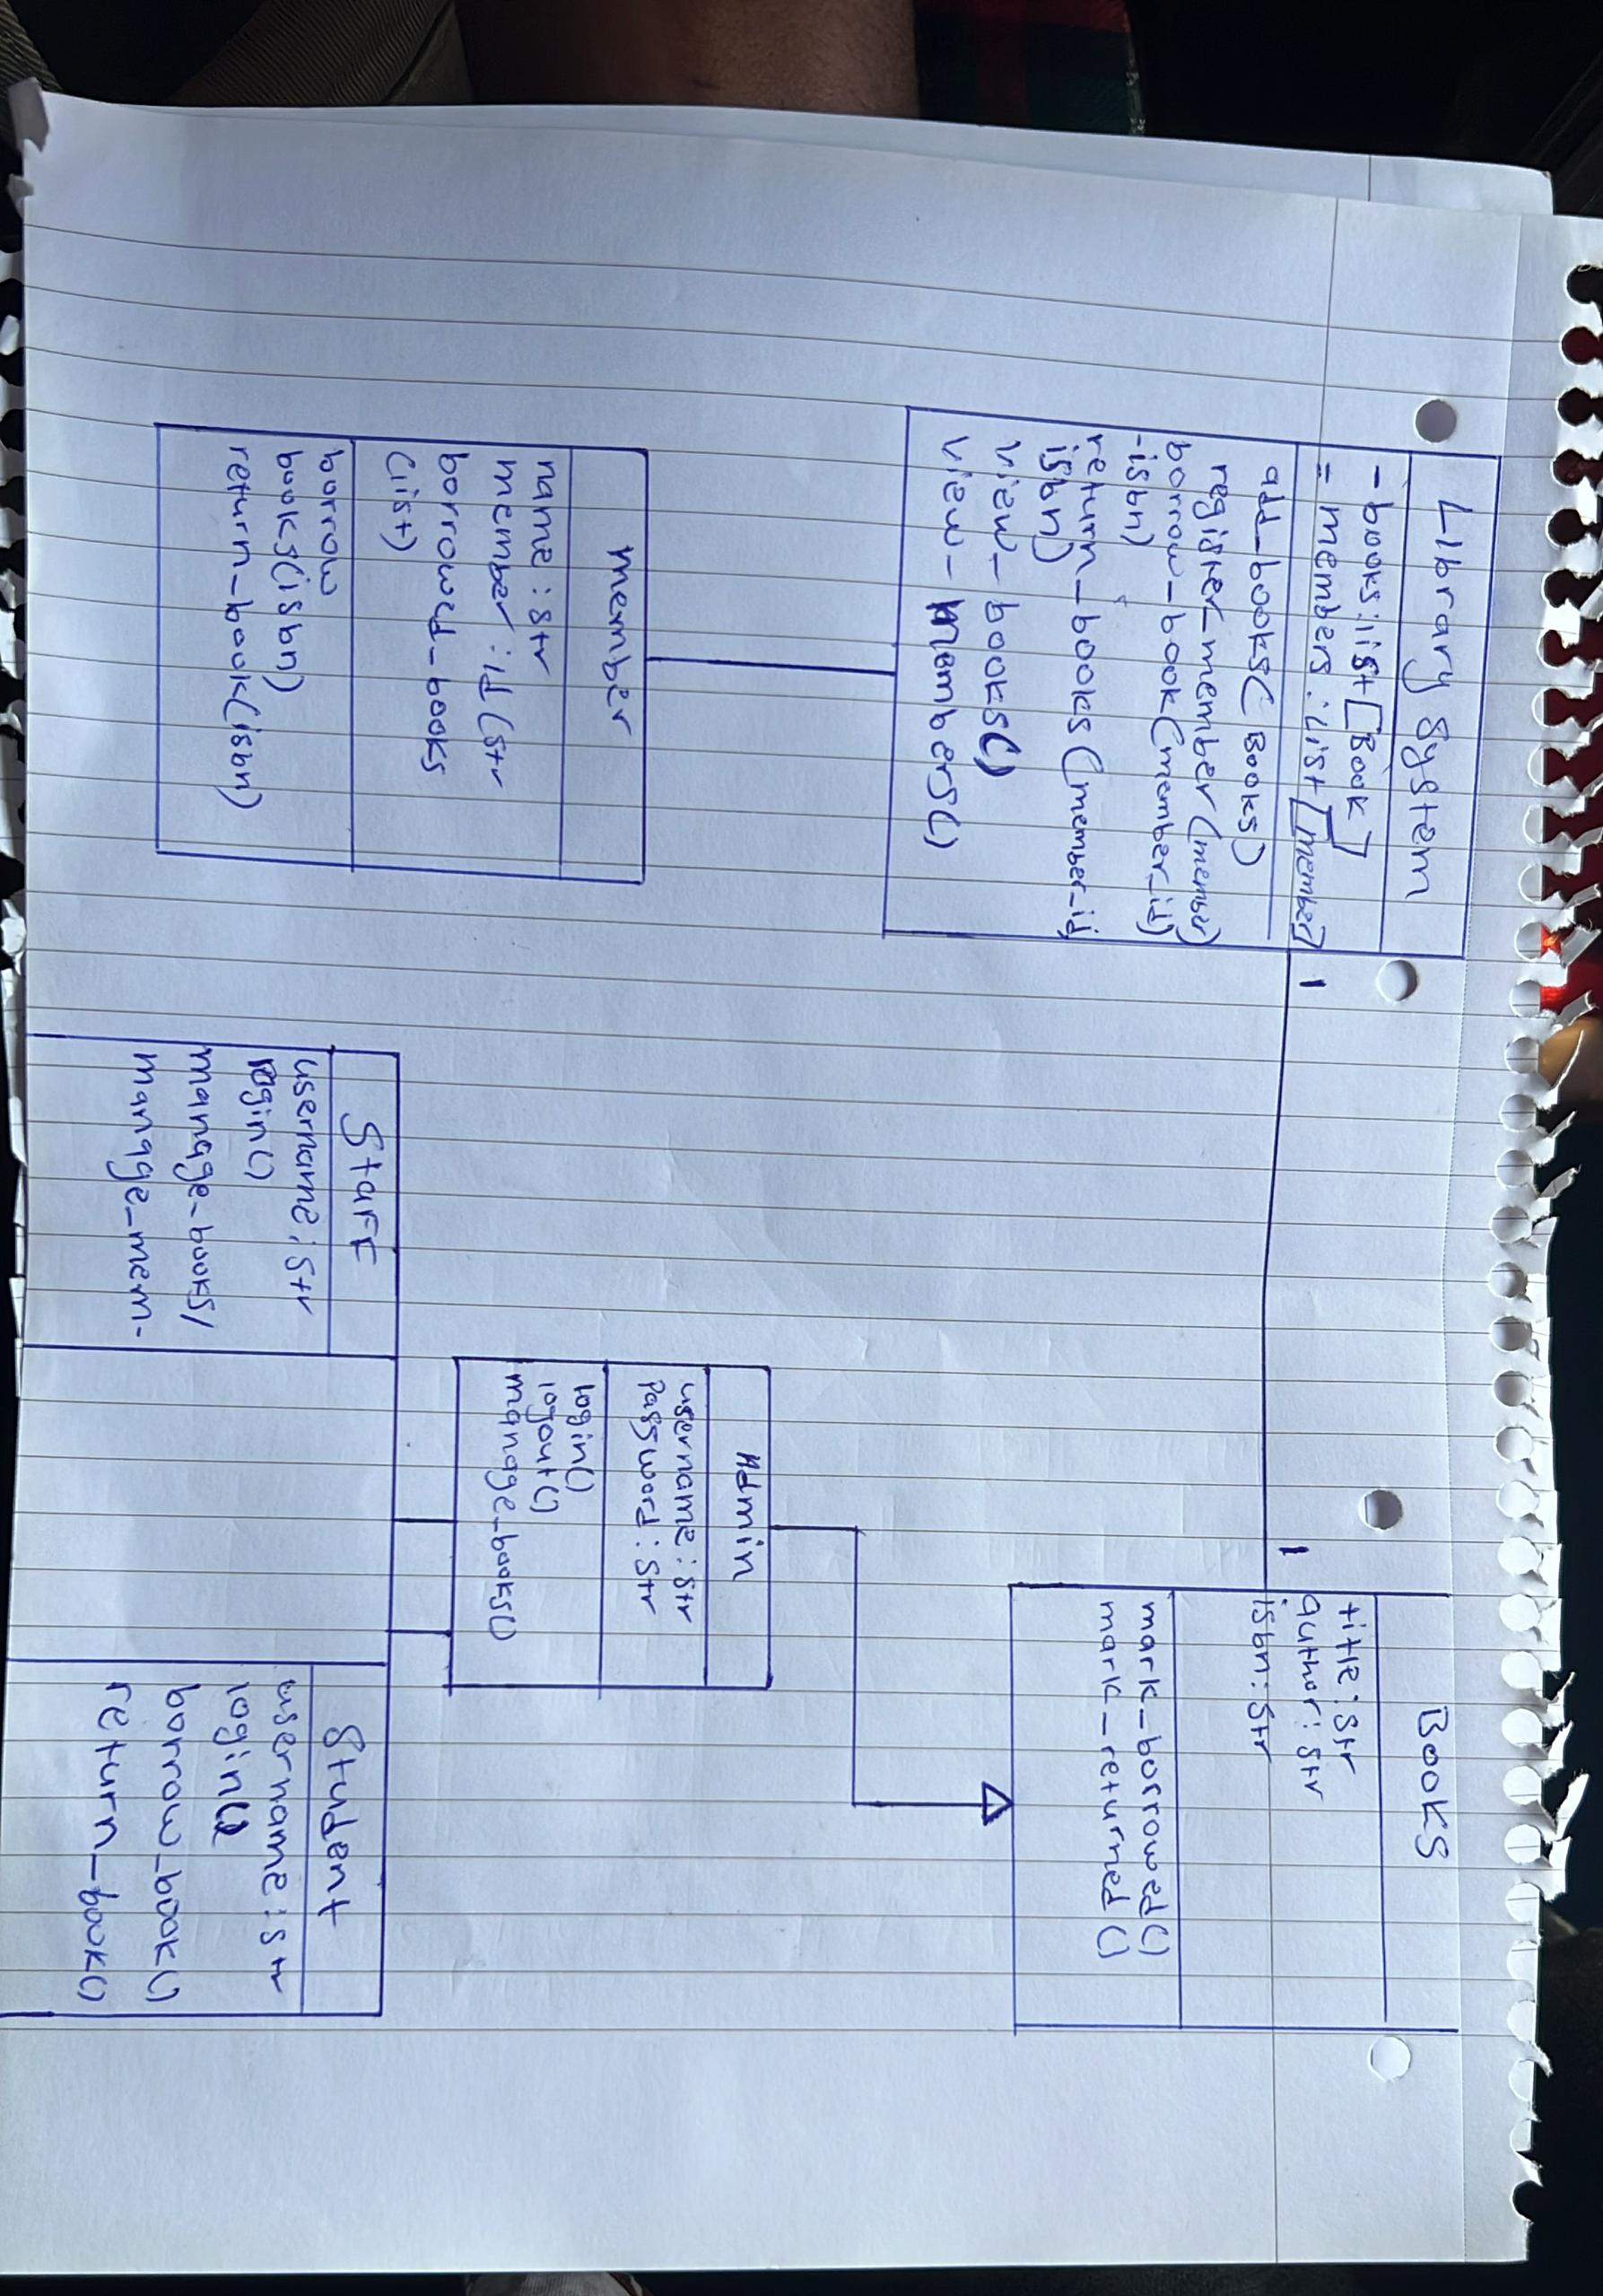 Library System
-books:list[Book]
= members:List[member]
add_books(Books)
register_member(member)
borrow_book(member_id
-isbn)
return_books(member_id
isbn)
view-books()
view-members()
1
1
Books
title:str
author:str
isbn:str
mark_borrowed()
mark_returned()
member
name:str
member:id(str
borrowed_books
(list)
borrow
books(isbn)
return_book(isbn)
Admin
username:str
password:str
login()
logout()
manage_books()
Staff
username:str
login()
manage_books/
manage_mem-
Student
username:str
login()
borrow_book()
return_book()